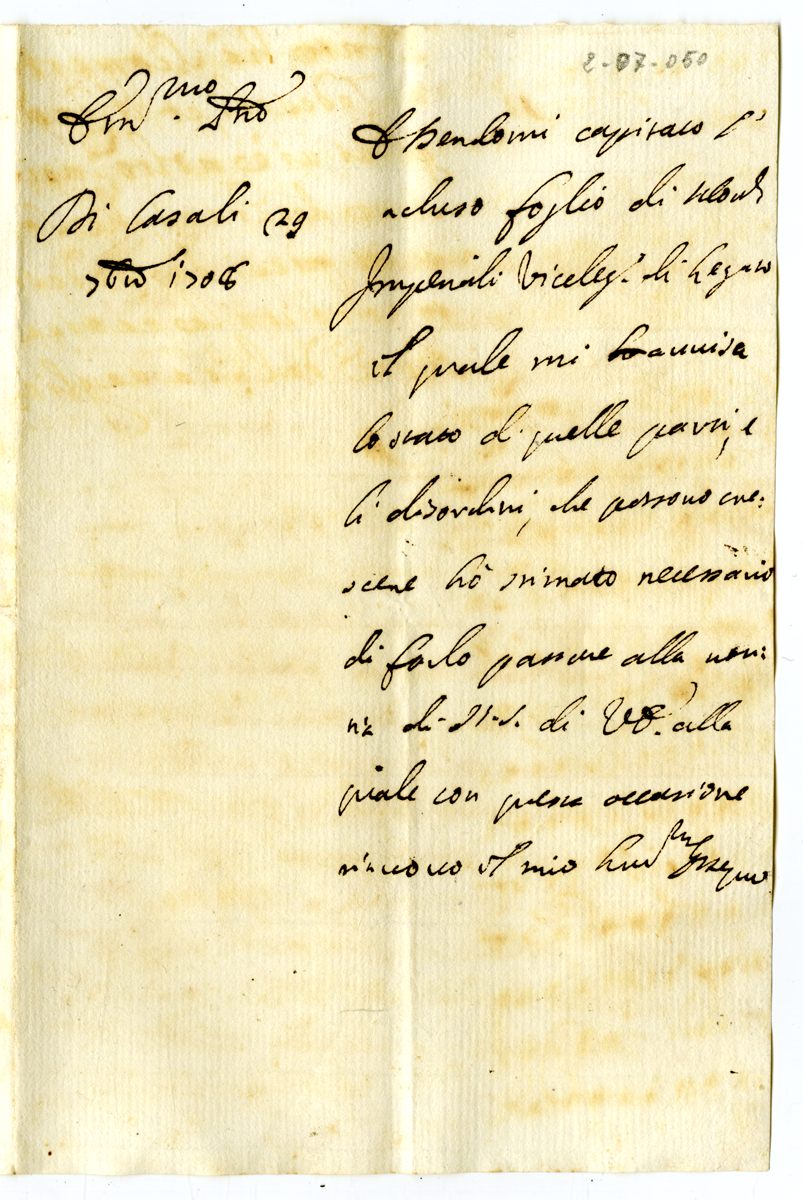 2-07-050
Em.mo Pnõ
Di Casali 29
7brẽ 1708
Essendomi capitato l'
acluso foglio di Mons.
Imperiali Viceleg.º di
il quale mi avvisa
lo stato di quelle parti, e
li disordini, che possono cre:
scere hò stimato necessario
di farlo passare alla noti:
tia di N.S. di VE. alla
quale con questa occasione
rinnovo il mio hum.mo ossequio